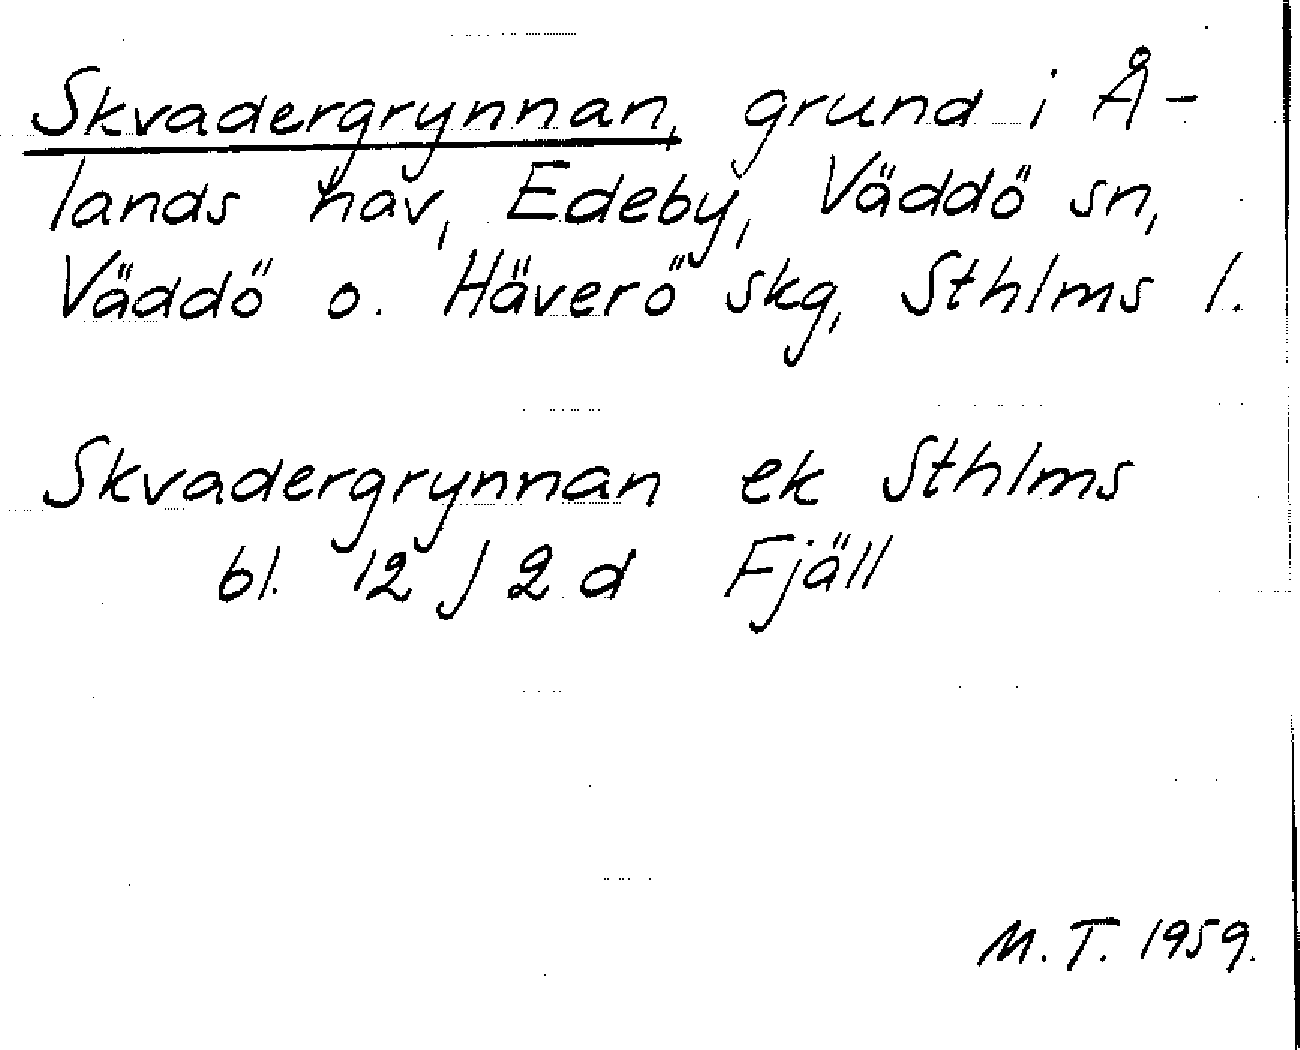 Skvadergrynnan, grund i Å-
lands hav, Edeby, Väddö sn,
Väddö o. Häverö skg, Sthlms l.
Skvadergrynnan ek Sthlms
bl. 12 J 2 d Fjäll
M. T. 1959.